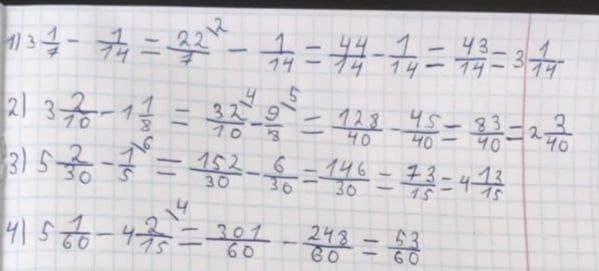 1) 3 1/7 - 1/14 = 22/7 \2 - 1/14 = 44/14 - 1/14 = 43/14 = 3 1/14
2) 3 2/10 - 1 1/8 = 32/10 \4 - 9/8 \5 = 128/40 - 45/40 = 83/40 = 2 3/40
3) 5 2/30 - 1/5 \6 = 152/30 - 6/30 = 146/30 = 73/15 = 4 13/15
4) 5 1/60 - 4 2/15 \4 = 301/60 - 248/60 = 53/60